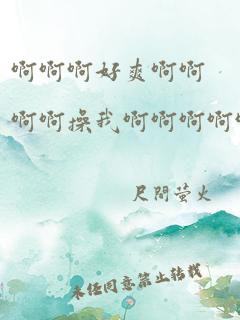 啊啊啊好爽啊啊
啊啊操我啊啊啊啊
尺間萤火
未经同意禁止转载